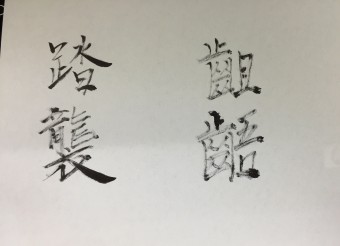 踏襲
齟齬